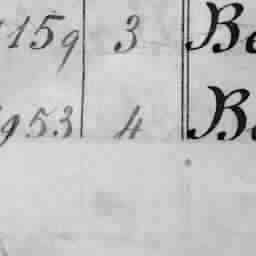 159 3 Be
953 4 Be